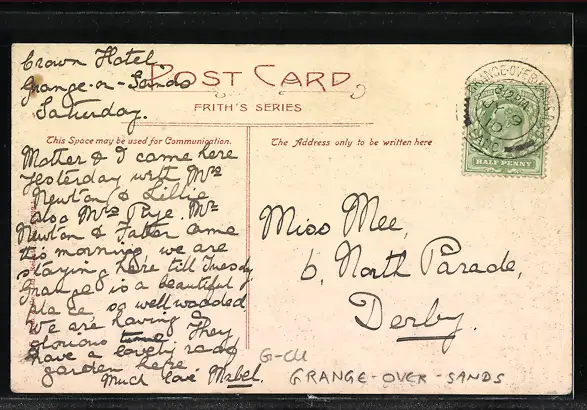 Crown Hotel.
Grange-on-Sands
Saturday.
POST CARD
FRITH'S SERIES
This Space may be used for Communication.
The Address only to be written here
HALF PENNY
Mother & I came here
yesterday with Mrs
Newton & Lillie
also Mrs Pye. Mr
Newton & Father came
this morning we are
staying here till Tuesday
Grange is a beautiful
place, so well wooded
We are having a
glorious time. They
have a lovely
garden here.
Much love Mabel.
Miss Mee,
6, North Parade,
Derby.
G-CU
GRANGE-OVER-SANDS